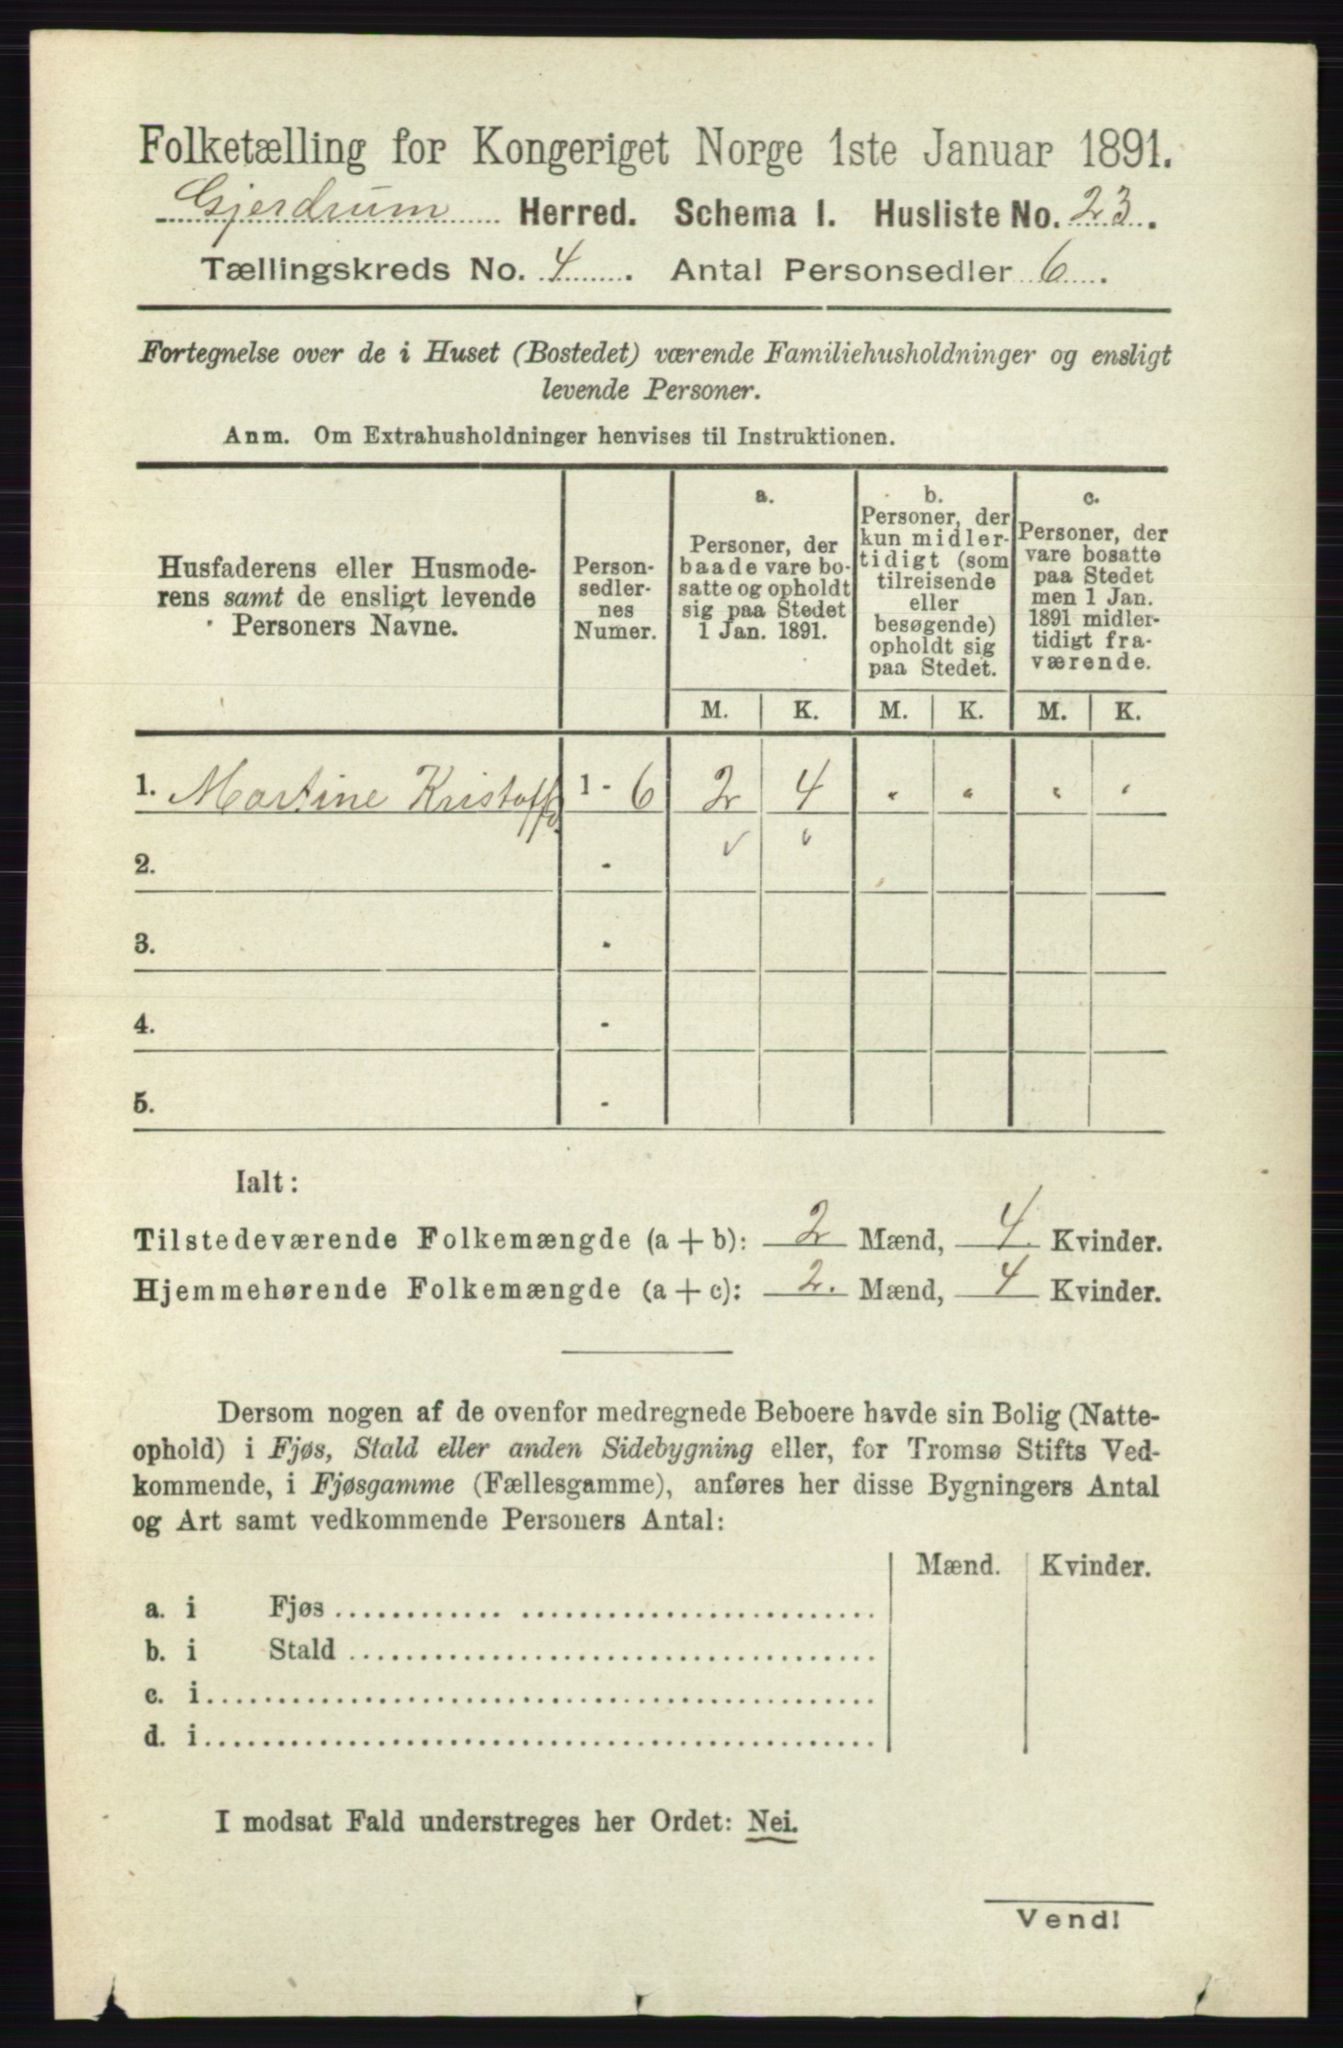 Folketælling for Kongeriget Norge 1ste Januar 1891.
Gjerdrum Herred. Schema I. Husliste No. 23.
Tællingskreds No. 4. Antal Personsedler 6.
Fortegnelse over de i Huset (Bostedet) værende Familiehusholdninger og ensligt
levende Personer.
Anm. Om Extrahusholdninger henvises til Instruktionen.
Husfaderens eller Husmode-
rens samt de ensligt levende
Personers Navne.
Person-
sedler-
nes
Numer.
a.
Personer, der
baade vare bo-
satte og opholdt
sig paa Stedet
1 Jan. 1891.
b.
Personer, der
kun midler-
tidigt (som
tilreisende
eller
besøgende)
opholdt sig
paa Stedet.
c.
Personer, der
vare bosatte
paa Stedet
men 1 Jan.
1891 midler-
tidigt fra-
værende.
M. K. M. K. M. K.
1. Martine Kristoff 1 - 6 2 4 " " " "
2. -
3. -
4. -
5. -
Ialt:
Tilstedeværende Folkemængde (a + b): 2 Mænd, 4 Kvinder.
Hjemmehørende Folkemængde (a + c): 2. Mænd, 4 Kvinder.
Dersom nogen af de ovenfor medregnede Beboere havde sin Bolig (Natte-
ophold) i Fjøs, Stald eller anden Sidebygning eller, for Tromsø Stifts Ved-
kommende, i Fjøsgamme (Fællesgamme), anføres her disse Bygningers Antal
og Art samt vedkommende Personers Antal:
Mænd. Kvinder.
a. i Fjøs
b. i Stald
c. i
d. i
I modsat Fald understreges her Ordet: Nei.
Vend!